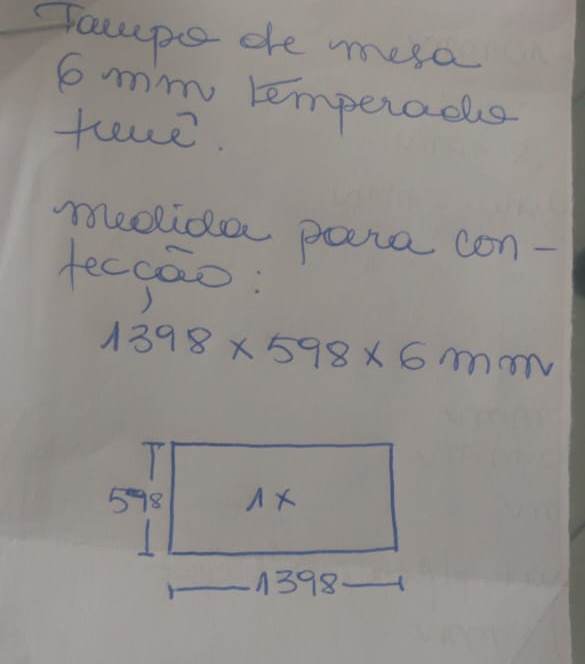 Tampo de mesa
6 mm temperado
fumê.
medida para con-
fecção:
1398 x 598 x 6 mm
598
1x
1398